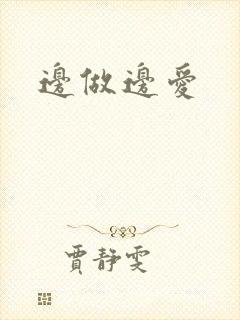 邊做邊愛
賈靜雯